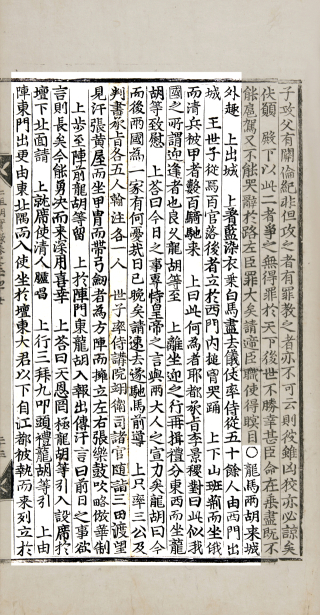 子攻父有關倫紀非但攻之者有罪敎之者亦不可云則彼雖凶狡亦必諒矣
伏願 殿下以此二者爭之無得罪於天下後世不勝幸甚臣命在垂盡旣不
能扈駕又不能哭辭於路左臣罪大矣請遞臣職使得瞑目〇龍馬兩胡來城
外趣 上出城 上着藍染衣乘白馬盡去儀仗率侍從五十餘人由西門出
城 王世子從焉百官落後者立於西門內搥胷哭踊 上下山班荊而坐俄
而淸兵被甲者數百騎馳來 上曰此何爲者耶都承旨李景稷對曰此似我
國之所謂迎逢者也良久龍胡等至 上離坐迎之行再揖禮分東西而坐龍
胡等致慰 上答曰今日之事專恃皇帝之言與兩大人之宣力矣龍胡曰今
而後兩國爲一家有何憂哉日已晚矣請速去遂馳馬前導 上只率三公及
判書承旨各五人翰注各一人 世子率侍講院翊衛司諸官隨詣三田渡望
見汗張黃屋而坐甲冑而帶弓劒者爲方陣而擁立左右張樂鼓吹略倣華制
上步至陣前龍胡等留 上於陣門東龍胡入報出傳汗言曰前日之事欲
言則長矣今能勇決而來深用喜幸 上答曰天恩罔極龍胡等引入設席於
壇下北面請 上就席使淸人臚唱 上行三拜九叩頭禮龍胡等引 上由
陣東門出更由東北隅而入使坐於壇東大君以下自江都被執而來列立於